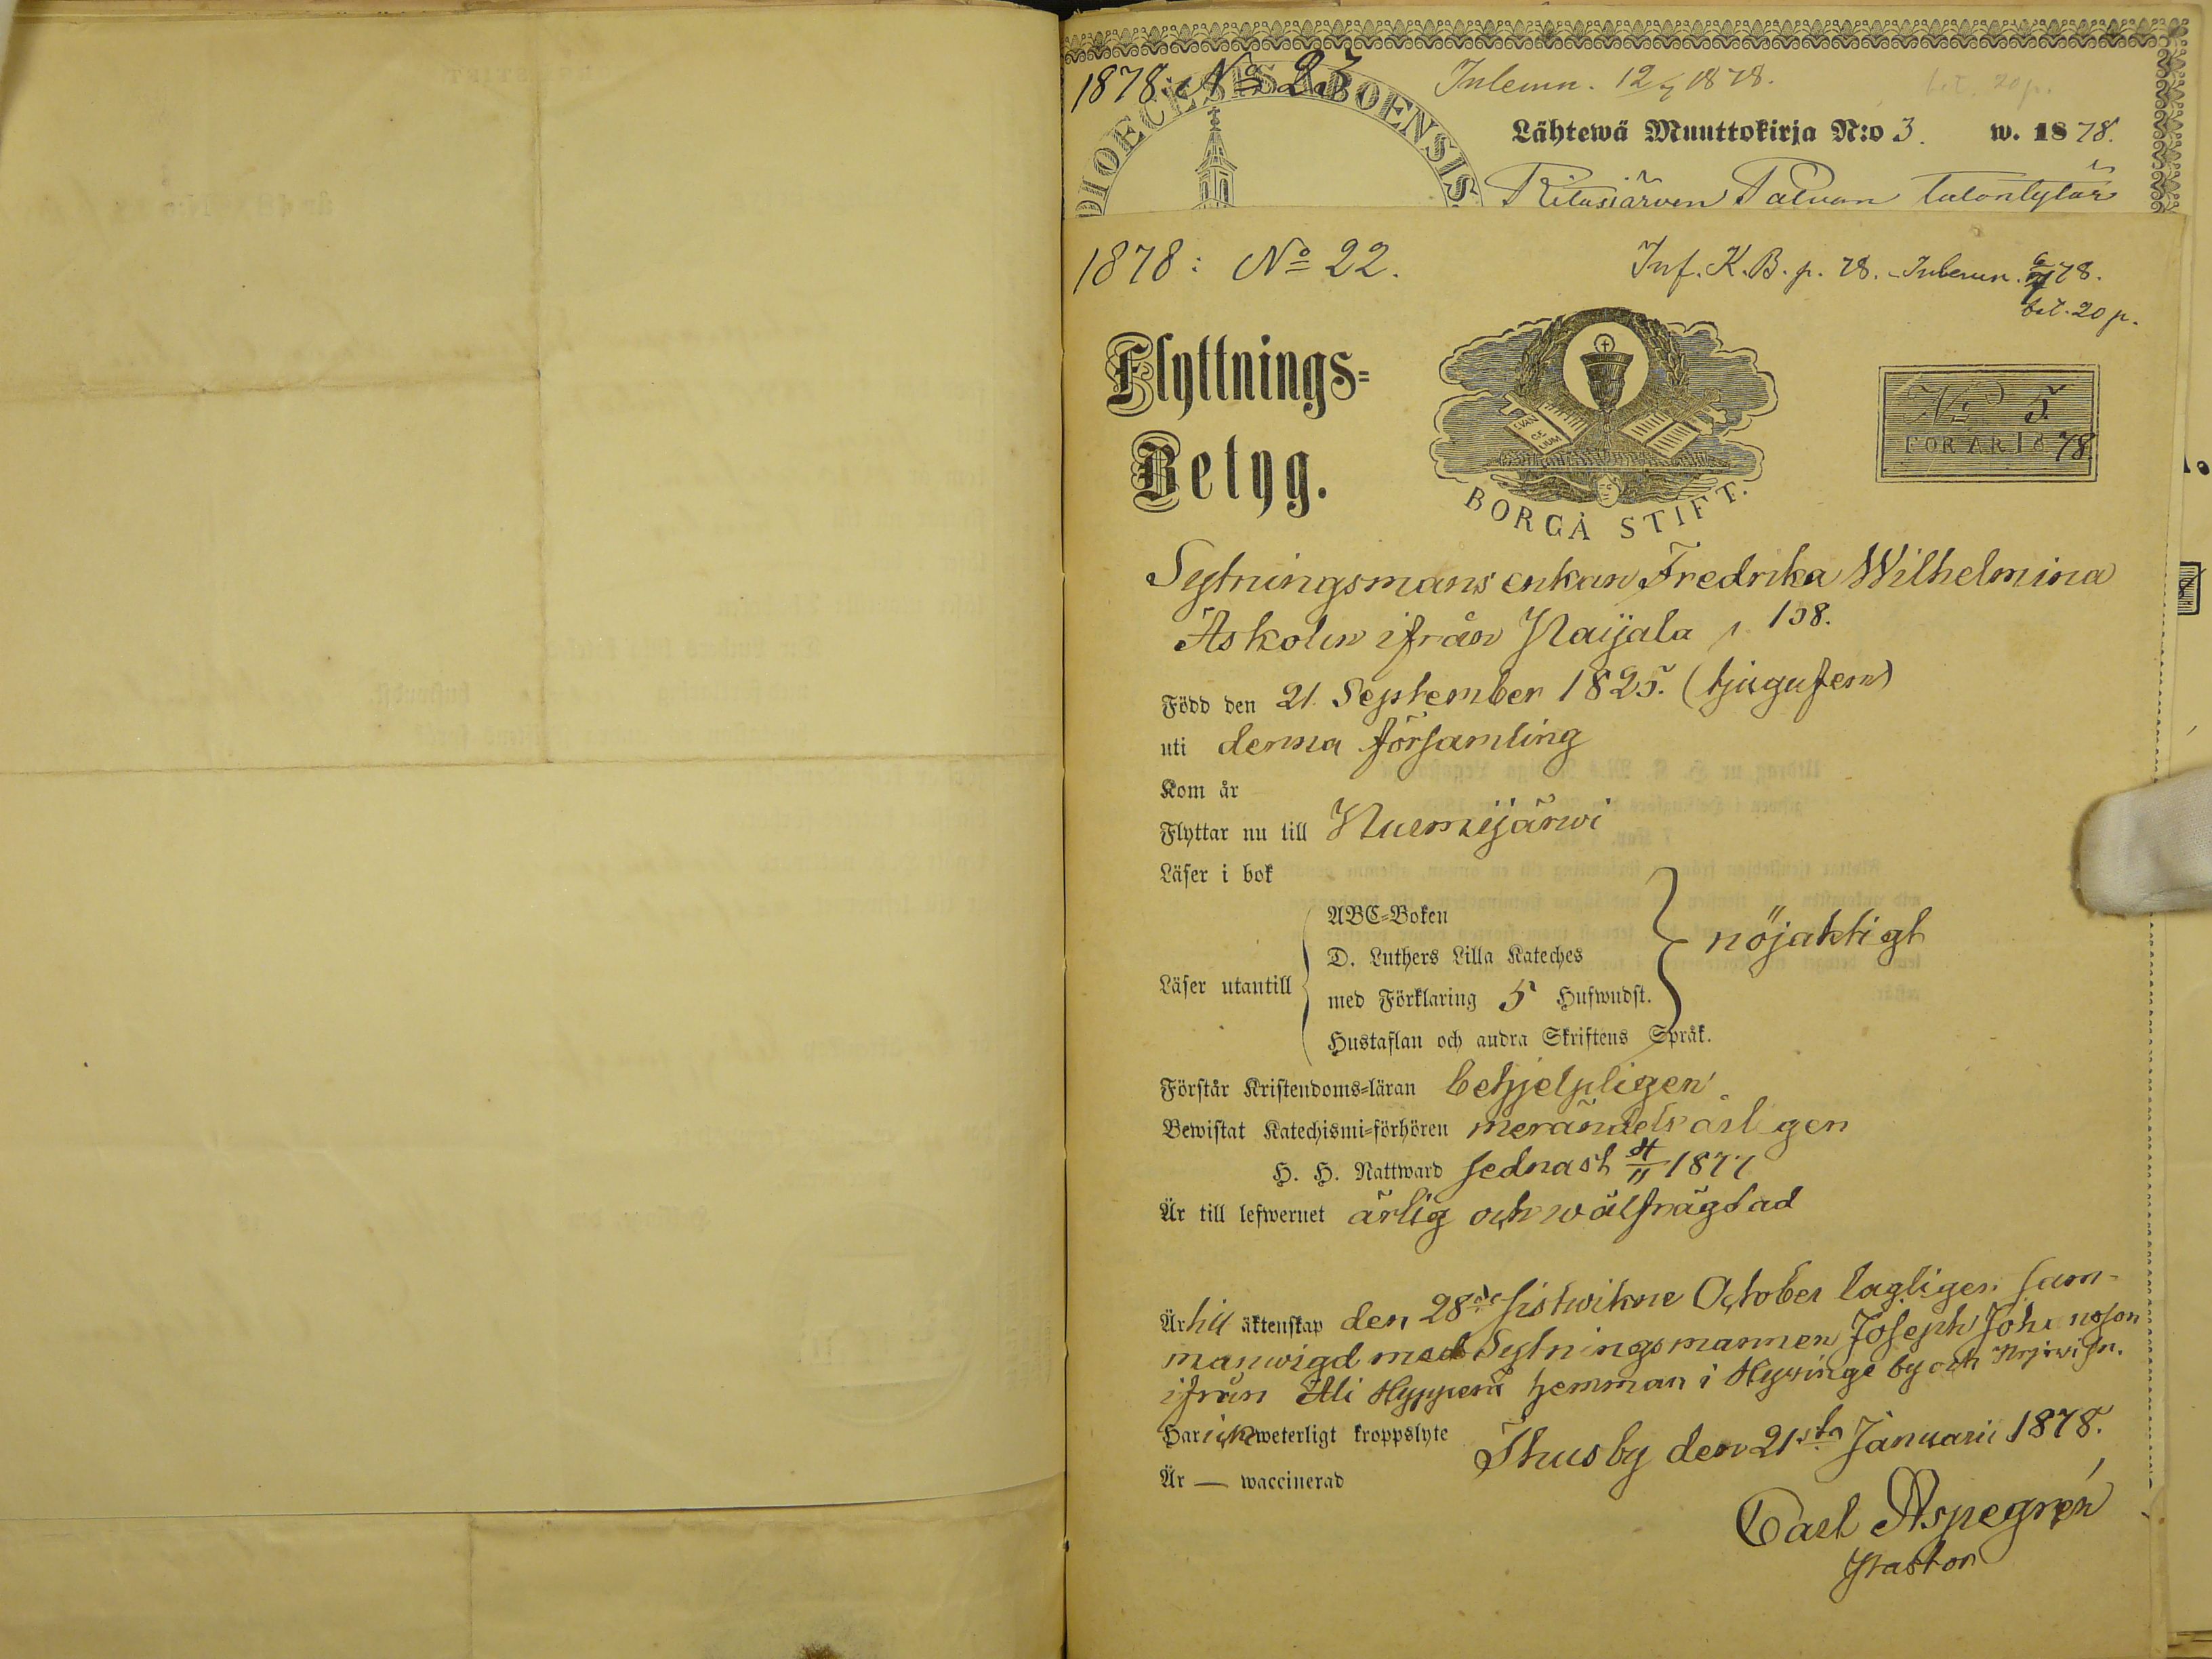 1878: No 23 Inlemn. 12/4 1878. bet. 20 p.
DIOECESIS ABOENSIS.
Lähtewä Muuttokirja N:o 3. w. 1878.
Talontytär
1878: No 22. Inf. K. B. p. 78. - Inlemn. 78.
bet. 20 p.
Flyttnings=
Betyg.
EVAN
GE
LIUM
BORGÅ STIFT.
No 5.
FÖR ÅR 1878
Sytningsmans enkan Fredrika Wilhelmina
Askolin ifrån Naijala p. 158.
Född den 21 September 1825. (tjugufem)
uti denna församling
Kom år
Flyttar nu till Nurmijärwi
Läser i bok
Läser utantill
ABC=Boken
D. Luthers Lilla Kateches
med Förklaring 5 Hufwudst.
Hustaflan och andra Skriftens Språk.
nöjaktigt
Förstår Kristendoms=läran behjelpligen
Bewistat Katechismi=förhören merändels årligen
H. H. Nattward sednast 4/11 1877
Är till lefwernet ärlig och wälfrägdad
Är till äktenskap den 28de sistwikne October lagligen sam-
manwigd med Sytningsmannen Joseph Johansson
ifrån Ali Hyyppärä hemman i Hywinge by och
Har icke weterligt kroppslyte
Thusby den 21sta Januarii 1878.
Är — waccinerad
Carl Aspegrén
Pastor